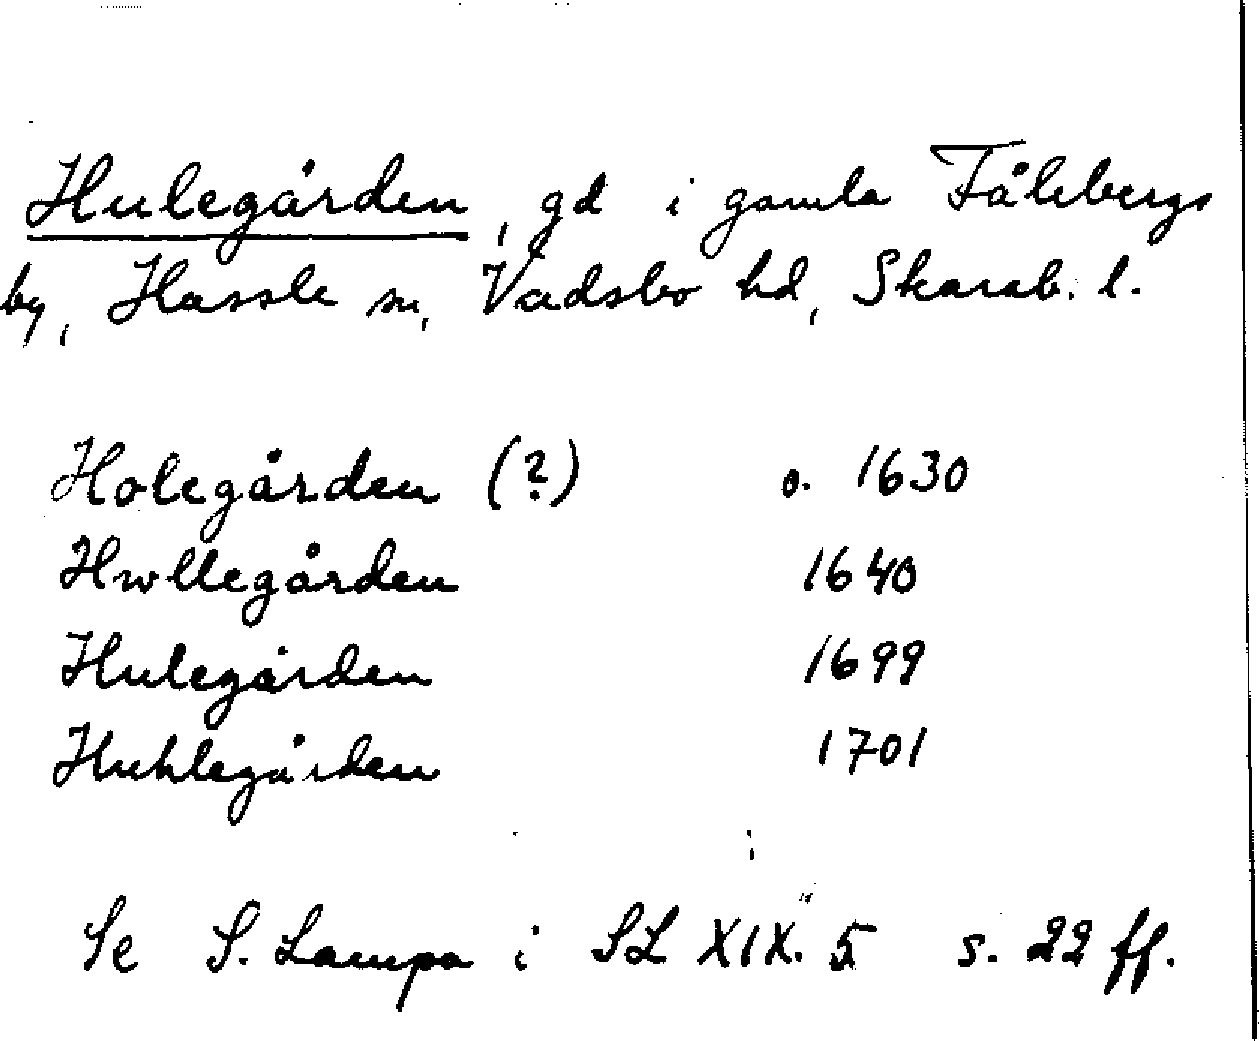 Hulegården, gd i gamla Fålebergs
by, Hassle sn, Vadsbo hd, Skarab. l.
Holegården (?) o. 1630
Hwllegården 1640
Hulegården 1699
Huhlegården 1701
Se S. Lampa i SL XIX. 5 s. 22 ff.